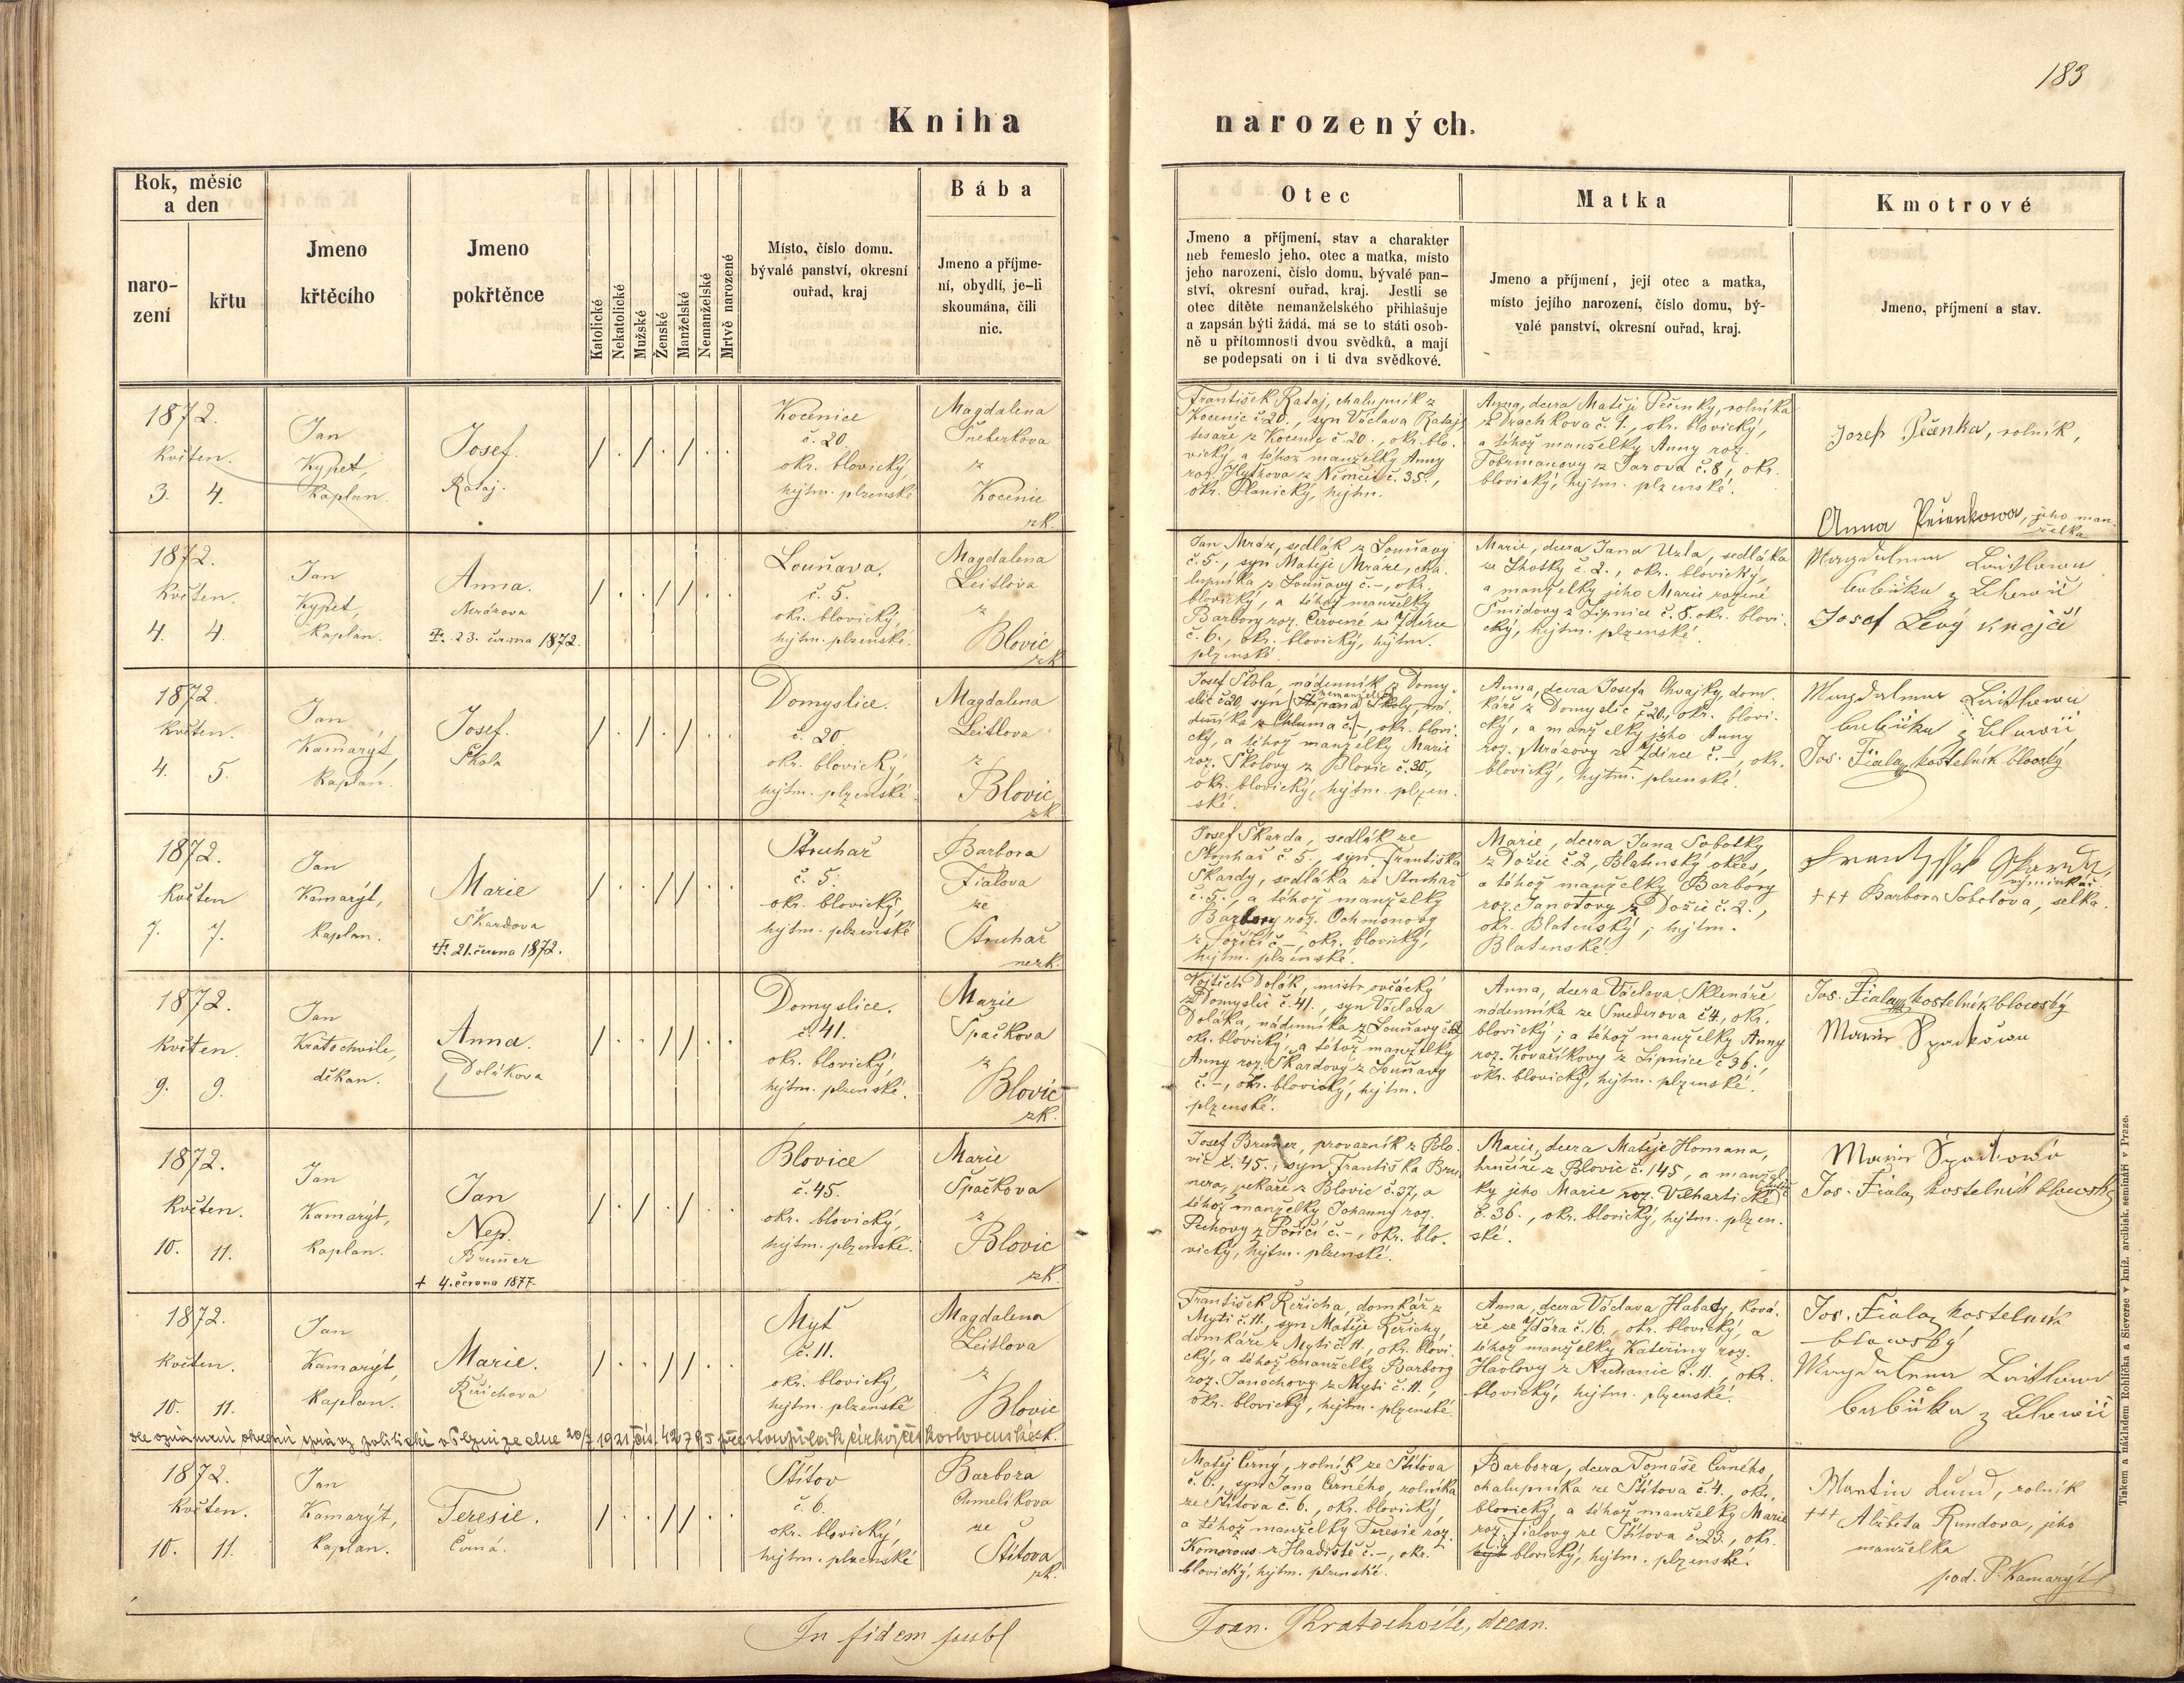 183
Kniha narozených.
Rok, měsíc
a den
naro-
zení
křtu
Jmeno
křtěcího
Jmeno
pokřtěnce
Katolické
Nekatolické
Mužské
Ženské
Manželské
Nemanželské
Mrtvě narozené
Místo, číslo domu.
bývalé panství, okresní
ouřad, kraj
Bába
Jmeno a příjme-
ní, obydlí, je-li
skoumána, čili
nic.
Otec
Jmeno a příjmení, stav a charakter
neb řemeslo jeho, otec a matka, místo
jeho narození, číslo domu, bývalé pan-
ství, okresní ouřad, kraj. Jestli se
otec dítěte nemanželského přihlašuje
a zapsán býti žádá, má se to státi osob-
ně u přítomnosti dvou svědků, a mají
se podepsati on i ti dva svědkové.
Matka
Jmeno a příjmení, její otec a matka,
místo jejího narození, číslo domu, bý-
valé panství, okresní ouřad, kraj.
Kmotrové
Jmeno, příjmení a stav.
1872.
květen.
3. 4.
Jan
Kypet,
kaplan.
Josef.
Rataj.
/ . / . / . .
Kocenice
č. 20
okr. blovický,
hejtm. plzenské
Magdalena
z
Kocenic
zk.
František Rataj, chalupník z
Kocenic č. 20., syn Václava Rataj,
tesaře z Kocenic č. 20., okr. blo-
vický, a téhož manželky Anny
roz. z Němčic č. 35.,
okr. Planický, hejtm.
Anna, dcera Matěje Pěčenky, rolníka
z Drachkova č. 1., okr. blovický,
a téhož manželky Anny roz.
z Žarova č. 8, okr.
blovický, hejtm. plzenské.
Josef Pěčenka, rolník,
Anna Pěčenkowa, jeho man-
želka
1872.
květen.
4. 4.
Jan
Kypet,
kaplan.
Anna.
Mrázova
†. 23. června 1872.
/ . . / / . .
Louňava,
č. 5.
okr. blovický,
hejtm. plzenské.
Magdalena
Leitlova
z
Blovic
zk.
Jan Mráz, sedlák z Louňavy
č. 5., syn Matěje Mráze, cha-
lupníka z Louňavy č. –, okr.
blovický, a téhož manželky
Barbory roz. Červené ze Ždírce
č. 6., okr. blovický, hejtm.
plzenské.
Marie, dcera Jana Uzla, sedláka
ze Lhotky č. 2., okr. blovický,
a manželky jeho Marie rozené
Šmidovy z Lipnice č. 8. okr. blovi-
cký, hejtm. plzenské.
Magdalena Leitlowa
babička z
Josef Levý krejčí
1872.
květen.
4. 5.
Jan
Kamarýt,
kaplan.
Josef.
Škola
/ . / . / . .
Domyslice.
č. 20
okr. blovický,
hejtm. plzenské.
Magdalena
Leitlova
z
Blovic
zk.
Josef Škola, nádenník z Domy-
slic č 20, syn nemanželský Štěpána Školy, ná-
denníka z Chluma č. –, okr. blovi-
cký, a téhož manželky Marie
roz. Školovy z Blovic č. 30.,
okr. blovický, hejtm. plzen-
ské.
Anna, dcera Josefa Chvajky, dom-
káře z Domyslic č 20, okr. blovi-
cký, a manželky jeho Anny
roz. Mrázovy ze Ždírce č. –, okr.
blovický, hejtm. plzenské.
Magdalena Leitlowa
babička z
Jos. Fiala, kostelník blowský
1872.
květen
7. 7.
Jan
Kamarýt,
kaplan.
Marie
Škardova
†. 21. června 1872.
/ . . / / . .
Struhař
č. 5.
okr. blovický,
hejtm. plzenské
Barbora
Fialova
ze
Struhař
nezk.
Josef Škarda, sedlák ze
Struhař č 5., syn Františka
Škardy, sedláka ze Struhař
č. 5., a téhož manželky
Barbory roz. Ochmonovy
z Poříčí č –, okr. blovický,
hejtm. plzenské.
Marie, dcera Jana Sobotky
z Dožic č. 2, Blatenský okres,
a téhož manželky Barbory
roz. Janotovy z Dožic č. 2.,
okr. Blatenský, hejtm.
Blatenské.
Frantissek Skarda,
výminkář.
+++ Barbora Sobotova, selka.
1872.
květen.
9. 9.
Jan
Kratochvile,
děkan.
Anna.
Dolákova
/ . . / / . .
Domyslice.
č. 41.
okr. blovický,
hejtm. plzenské.
Marie
Špačkova
z
Blovic
zk.
Vojtěch Dolák, mistr ovčácký
z Domyslic č. 41., syn Václava
Doláka, nádenníka z Louňavy
okr. blovický, a téhož manželky
Anny roz. Škardovy z Louňavy
č. –, okr. blovický, hejtm.
plzenské.
Anna, dcera Václava Sklenáře,
nádenníka ze Smederova č 4., okr.
blovický, a téhož manželky Anny
roz. Kovaříkovy z Lipnice č 36.,
okr. blovický, hejtm. plzenské.
Jos. Fiala, kostelník blowský
Marie Spačkowa
1872.
květen.
10. 11.
Jan
Kamarýt,
kaplan.
Jan
Nep.
Bruner
+ 4. června 1877.
/ . / . / . .
Blovice
č. 45.
okr. blovický,
hejtm. plzenské.
Marie
Špačkova
z
Blovic
zk.
Josef Bruner, provazník z Blo-
vic č. 45., syn Františka Bru-
nera, pekaře z Blovic č. 37, a
téhož manželky Johanny roz.
Pechovy z Poříčí č. –, okr. blo-
vický, hejtm. plzenské.
Marie, dcera Matěje Homana,
hrnčíře z Blovic č. 145, a manžel-
ky jeho Marie roz.
č. 36., okr. blovický, hejtm. plzen-
ské.
Marie Spačkowá
Jos. Fiala, kostelník blowský
1872.
květen.
10. 11.
Jan
Kamarýt,
kaplan.
Marie.
Řeřichova
/ . . / / . .
Mýť
č. 11.
okr. blovický,
hejtm. plzenské
Magdalena
Leitlova
z
Blovic
zk.
František Řeřicha, domkář z
Mýti č. 11., syn Matěje Řeřichy,
domkáře z Mýti č. 11., okr. blovi-
cký, a téhož manželky Barbory
roz. Janochovy z Mýti č. 11.,
okr. blovický, hejtm. plzenské.
Anna, dcera Václava Habady, ková-
ře ze Ždára č. 16., okr. blovický, a
téhož manželky Kateřiny roz.
Havlovy z Nechanic č. 11., okr.
blovický, hejtm. plzenské.
Jos. Fiala, kostelník
blowský
Magdalena Leitlowa
babička z
dle oznámení okresní správy politické v Plzni ze dne 20/7 1921 čís. 42795 přestoupila k církvi československé.
1872.
květen.
10. 11.
Jan
Kamarýt,
kaplan.
Teresie.
Černá.
/ . . / / . .
Štítov
č. 6.
okr. blovický,
hejtm. plzenské
Barbora
Chmelíkova
ze
Štítova
zk.
Matěj Černý, rolník ze Štítova
č. 6., syn Jana Černého, rolníka
ze Štítova č. 6., okr. blovický
a téhož manželky Teresie roz.
Komorous z Hradiště č. –, okr.
blovický, hejtm. plzenské.
Barbora, dcera Tomáše Černého,
chalupníka ze Štítova č. 4., okr.
blovický, a téhož manželky Marie
roz. Fialovy ze Štítova č. 23., okr.
blovický, hejtm. plzenské.
Martin, rolník
+++ Alžběta Rundova, jeho
manželka
pod. P. Kamarýt
In fidem publ
Joan. Kratochvile, decan.
Tiskem a nákladem Rohlíčka a Sieverse v kníž. arcibisk. semináři v Praze.